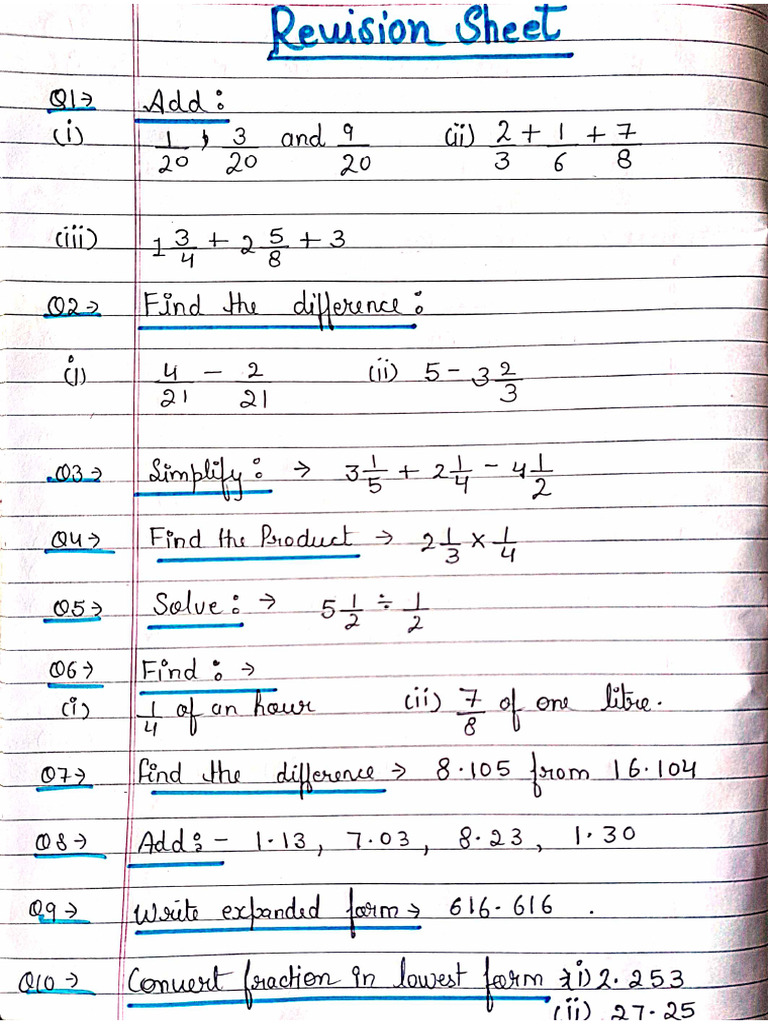 Revision Sheet
Q1→ Add:
(i) 1/20, 3/20 and 9/20 (ii) 2/3 + 1/6 + 7/8
(iii) 1 3/4 + 2 5/8 + 3
Q2→ Find the difference:
(i) 4/21 - 2/21 (ii) 5 - 3 2/3
Q3→ Simplify: → 3 1/5 + 2 1/4 - 4 1/2
Q4→ Find the Product → 2 1/3 × 1/4
Q5→ Solve: → 5 1/2 ÷ 1/2
Q6→ Find: →
(i) 1/4 of an hour (ii) 7/8 of one litre.
Q7→ find the difference → 8.105 from 16.104
Q8→ Add:- 1.13, 7.03, 8.23, 1.30
Q9→ Write expanded form → 616.616 .
Q10→ Convert fraction in lowest form → (i) 2.253
(ii) 27.25